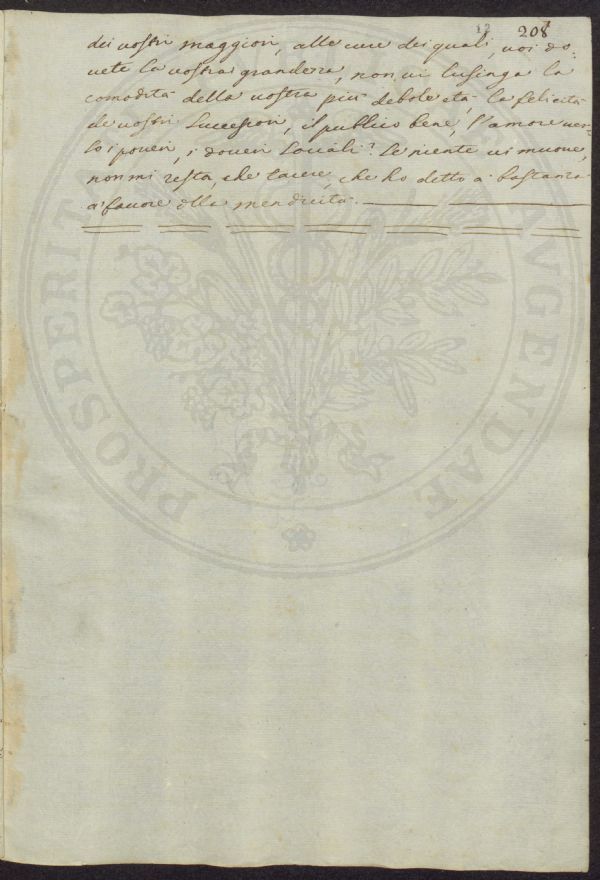 12 208
dei vostri maggiori, alle cure dei quali, voi do-
vete la vostra grandezza, non vi lusinga la
comodità della vostra più debole età, la felicità
de vostri Successori, il publico bene, l'amore ver-
so i poveri, i doveri Sociali? Se niente vi muove,
non mi resta, che tacere, che ho detto a' bastanza
a' favore della mendicità.
PROSPERITA AUGENDAE